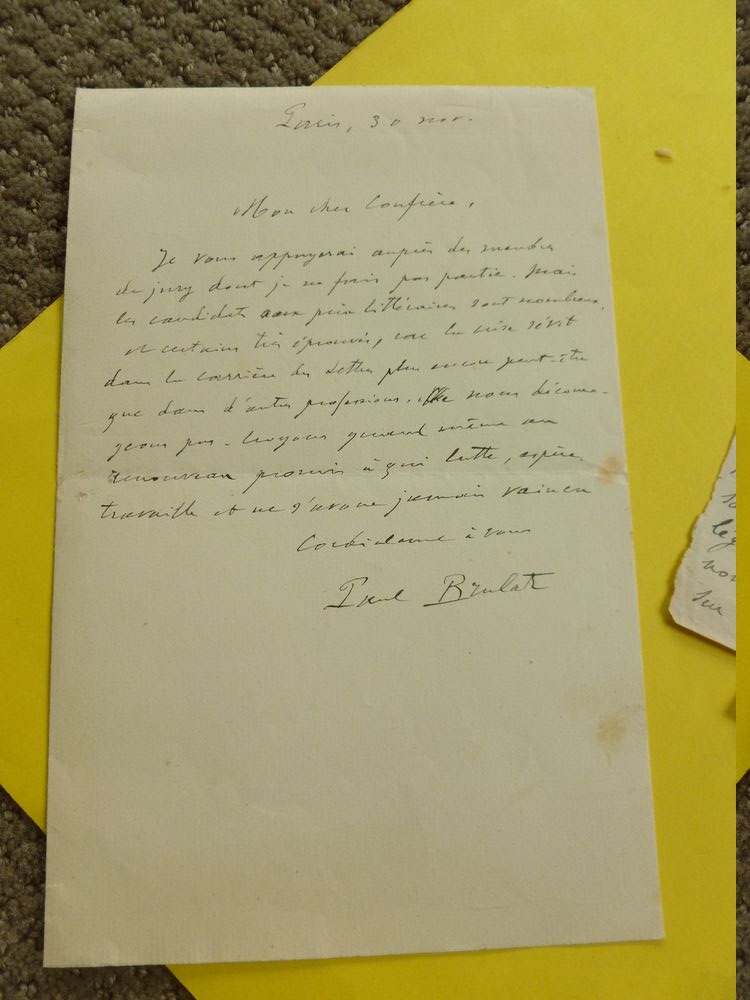 Paris, 30 nov.
Mon cher Confrère,
Je vous appuyerai auprès des membres
du jury dont je ne fais pas partie. Mais
les candidats aux prix littéraires sont nombreux
et certains très éprouvés, car la crise sévit
dans la carrière des Lettres plus encore peut-être
que dans d'autres professions. Ne nous découra-
geons pas. Croyons quand même au
renouveau promis à qui lutte, espère,
travaille et ne s'avoue jamais vaincu
Cordialement à vous
Paul Brulat
lég
nou
sur